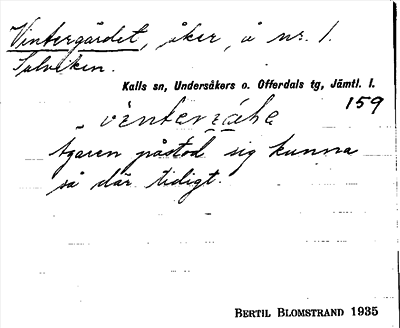 Vintergärdet, åker, å nr. 1.
Salviken.
Kalls sn, Undersåkers o. Offerdals tg, Jämtl. l.
159
Ägaren påstod sig kunna
så där tidigt.
BERTIL BLOMSTRAND 1935